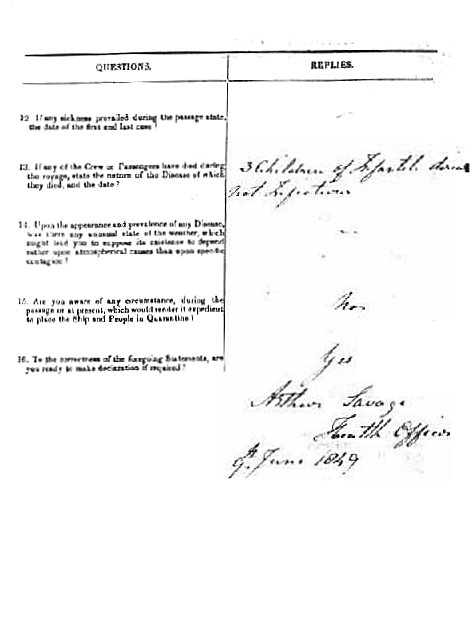 QUESTIONS.
REPLIES.
12. If any sickness prevailed during the passage state,
the date of the first and last case?
13. If any of the Crew or Passengers have died during
the voyage, state the nature of the Disease of which
they died, and the date?
3 Children of Infantile
not Infectious
14. Upon the appearance and prevalence of any Disease,
was there any unusual state of the weather, which
might lead you to suppose its existence to depend
rather upon atmospherical causes than upon specific
contagion?
15. Are you aware of any circumstance, during the
passage or at present, which would render it expedient
to place the Ship and People in Quarantine?
16. To the correctness of the foregoing Statements, are
you ready to make declaration if required?
Yes
Arthur Savage
Officer
9th June 1849